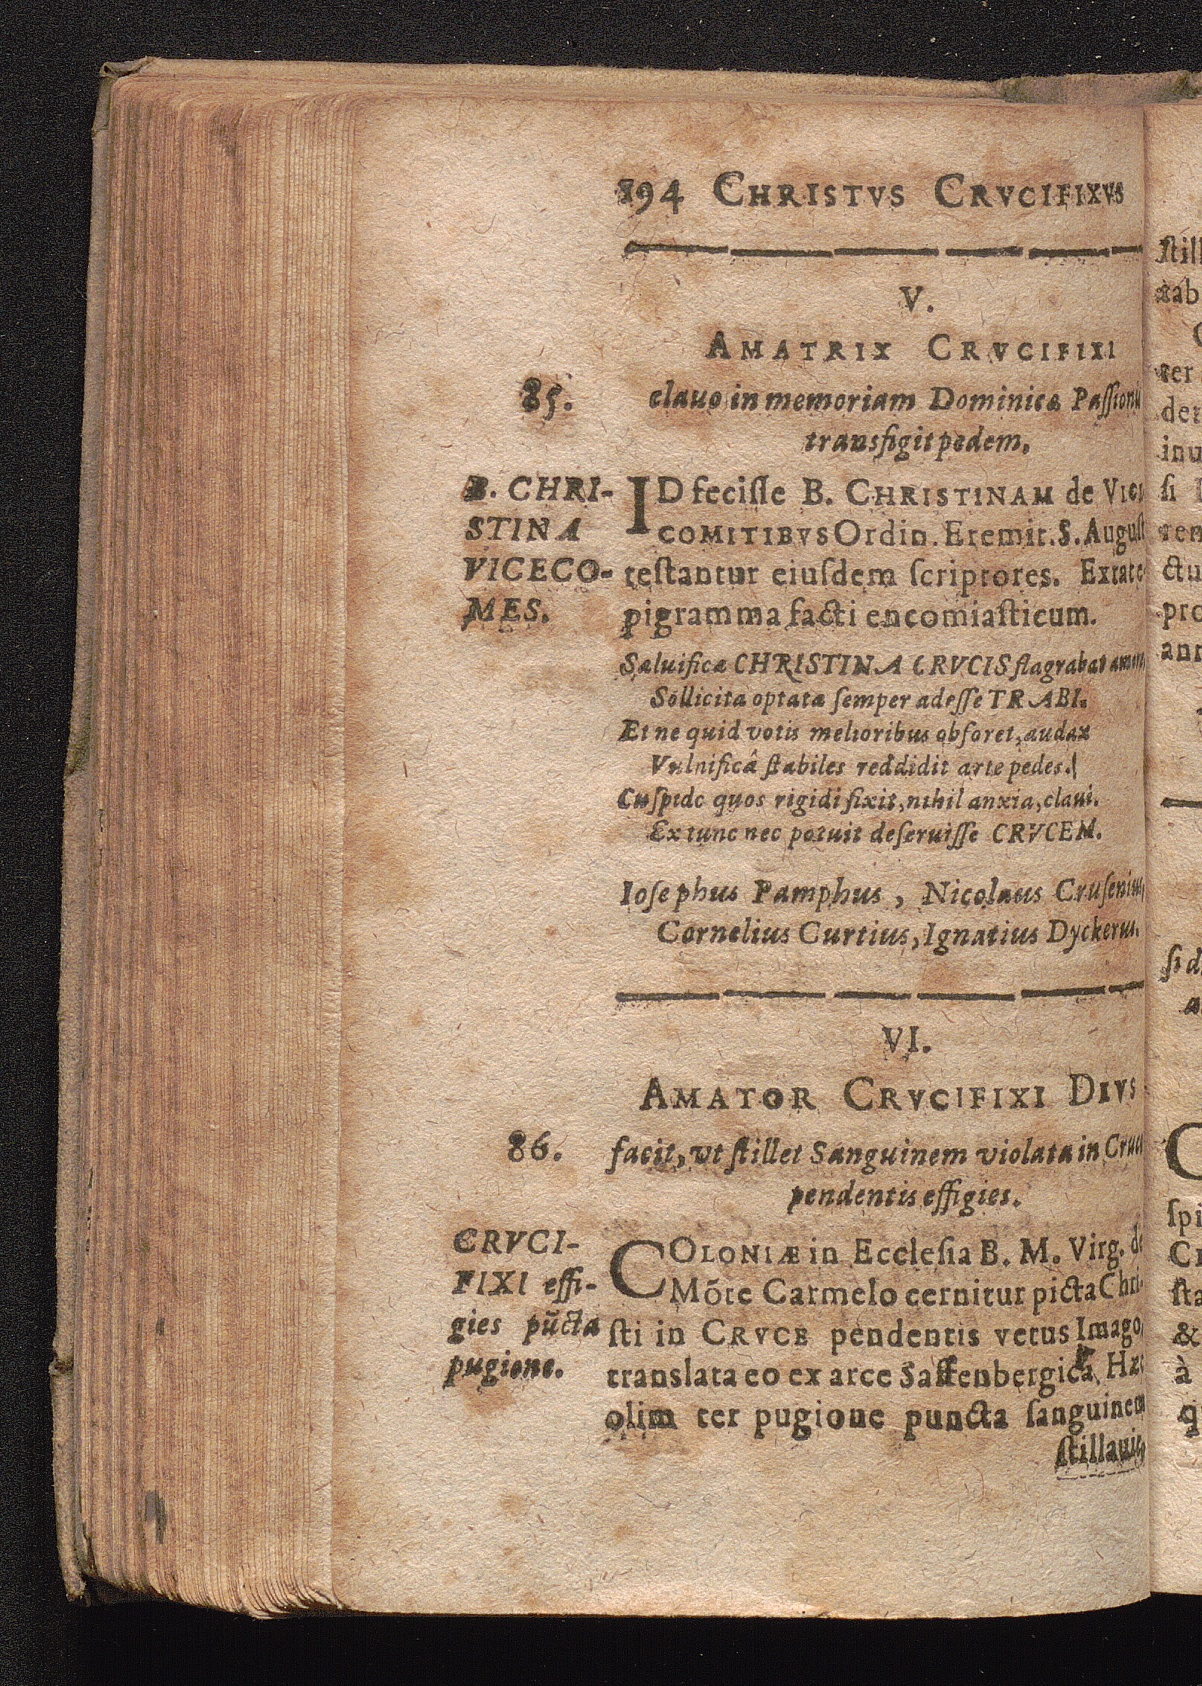 194 CHRISTVS CRVCIFIXVS
V.
AMATRIX CRVCIFIXI
85.
clauo in memoriam Dominicæ Paſſionis
transfigit pedem.
B. CHRI-
STINA
VICECO-
MES.
ID feciſſe B. CHRISTINAM de VICE
COMITIBVS Ordin. Eremit. S. Auguſt
teſtantur eiuſdem ſcriptores. Extat e-
pigramma facti encomiaſticum.
Saluificæ CHRISTINA CRVCIS flagrabat amore,
Sollicita optatæ ſemper adeſſe TRABI.
Et ne quid votis melioribus obforet, audax
Vulnificâ ſtabiles reddidit arte pedes.
Cuſpide quos rigidi fixit, nihil anxia, claui.
Ex tunc nec potuit deſeruiſſe CRVCEM.
Ioſephus Pamphus, Nicolaus Cruſenius,
Cornelius Curtius, Ignatius Dyckerus.
VI.
AMATOR CRVCIFIXI DIVS
86.
facit, vt ſtillet Sanguinem violata in Cruce
pendentis effigies.
CRVCI-
FIXI effi-
gies pũcta
pugione.
COLONIÆ in Eccleſia B. M. Virg. de
Mõte Carmelo cernitur picta Chri-
ſti in CRVCE pendentis vetus Imago,
translata eo ex arce Saffenbergica. Hæc
olim ter pugione puncta ſanguinem
ſtillauit,
ſtill
tab
ter
der
inu
ſi
ren
ctu
pro
ann
ſi d
a
C
ſpi
Cr
ſta
&
à
q